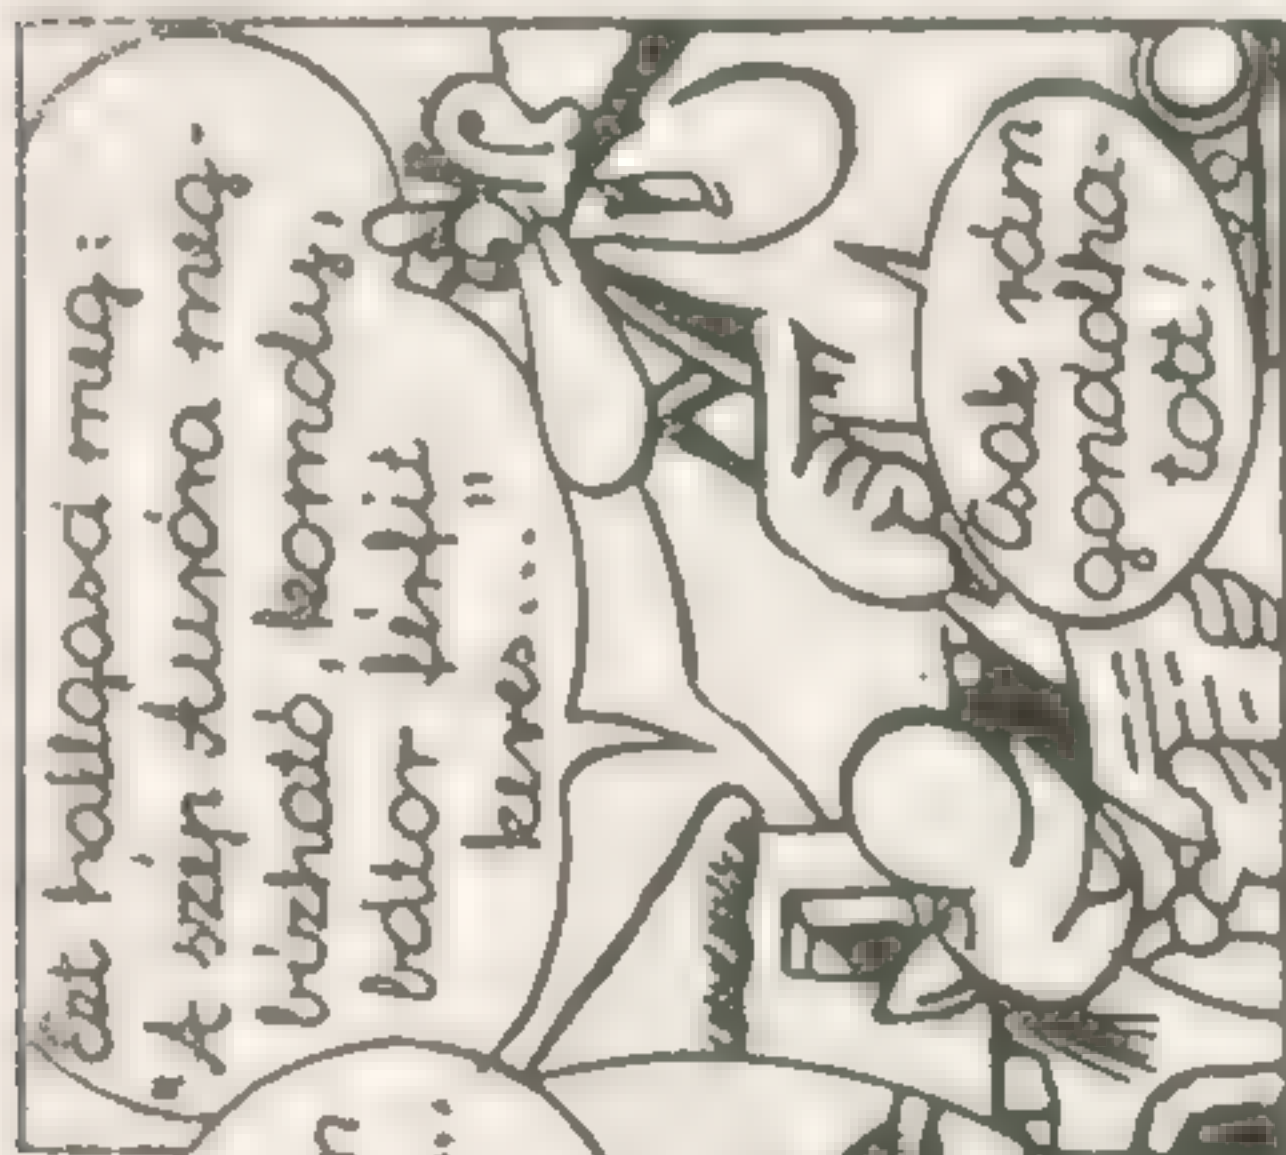 Ezt hallgasd meg:
"A szép túrára meg-
bízható, komoly,
bátor férfit
keres..."
Csak rám
gondolha-
tott!